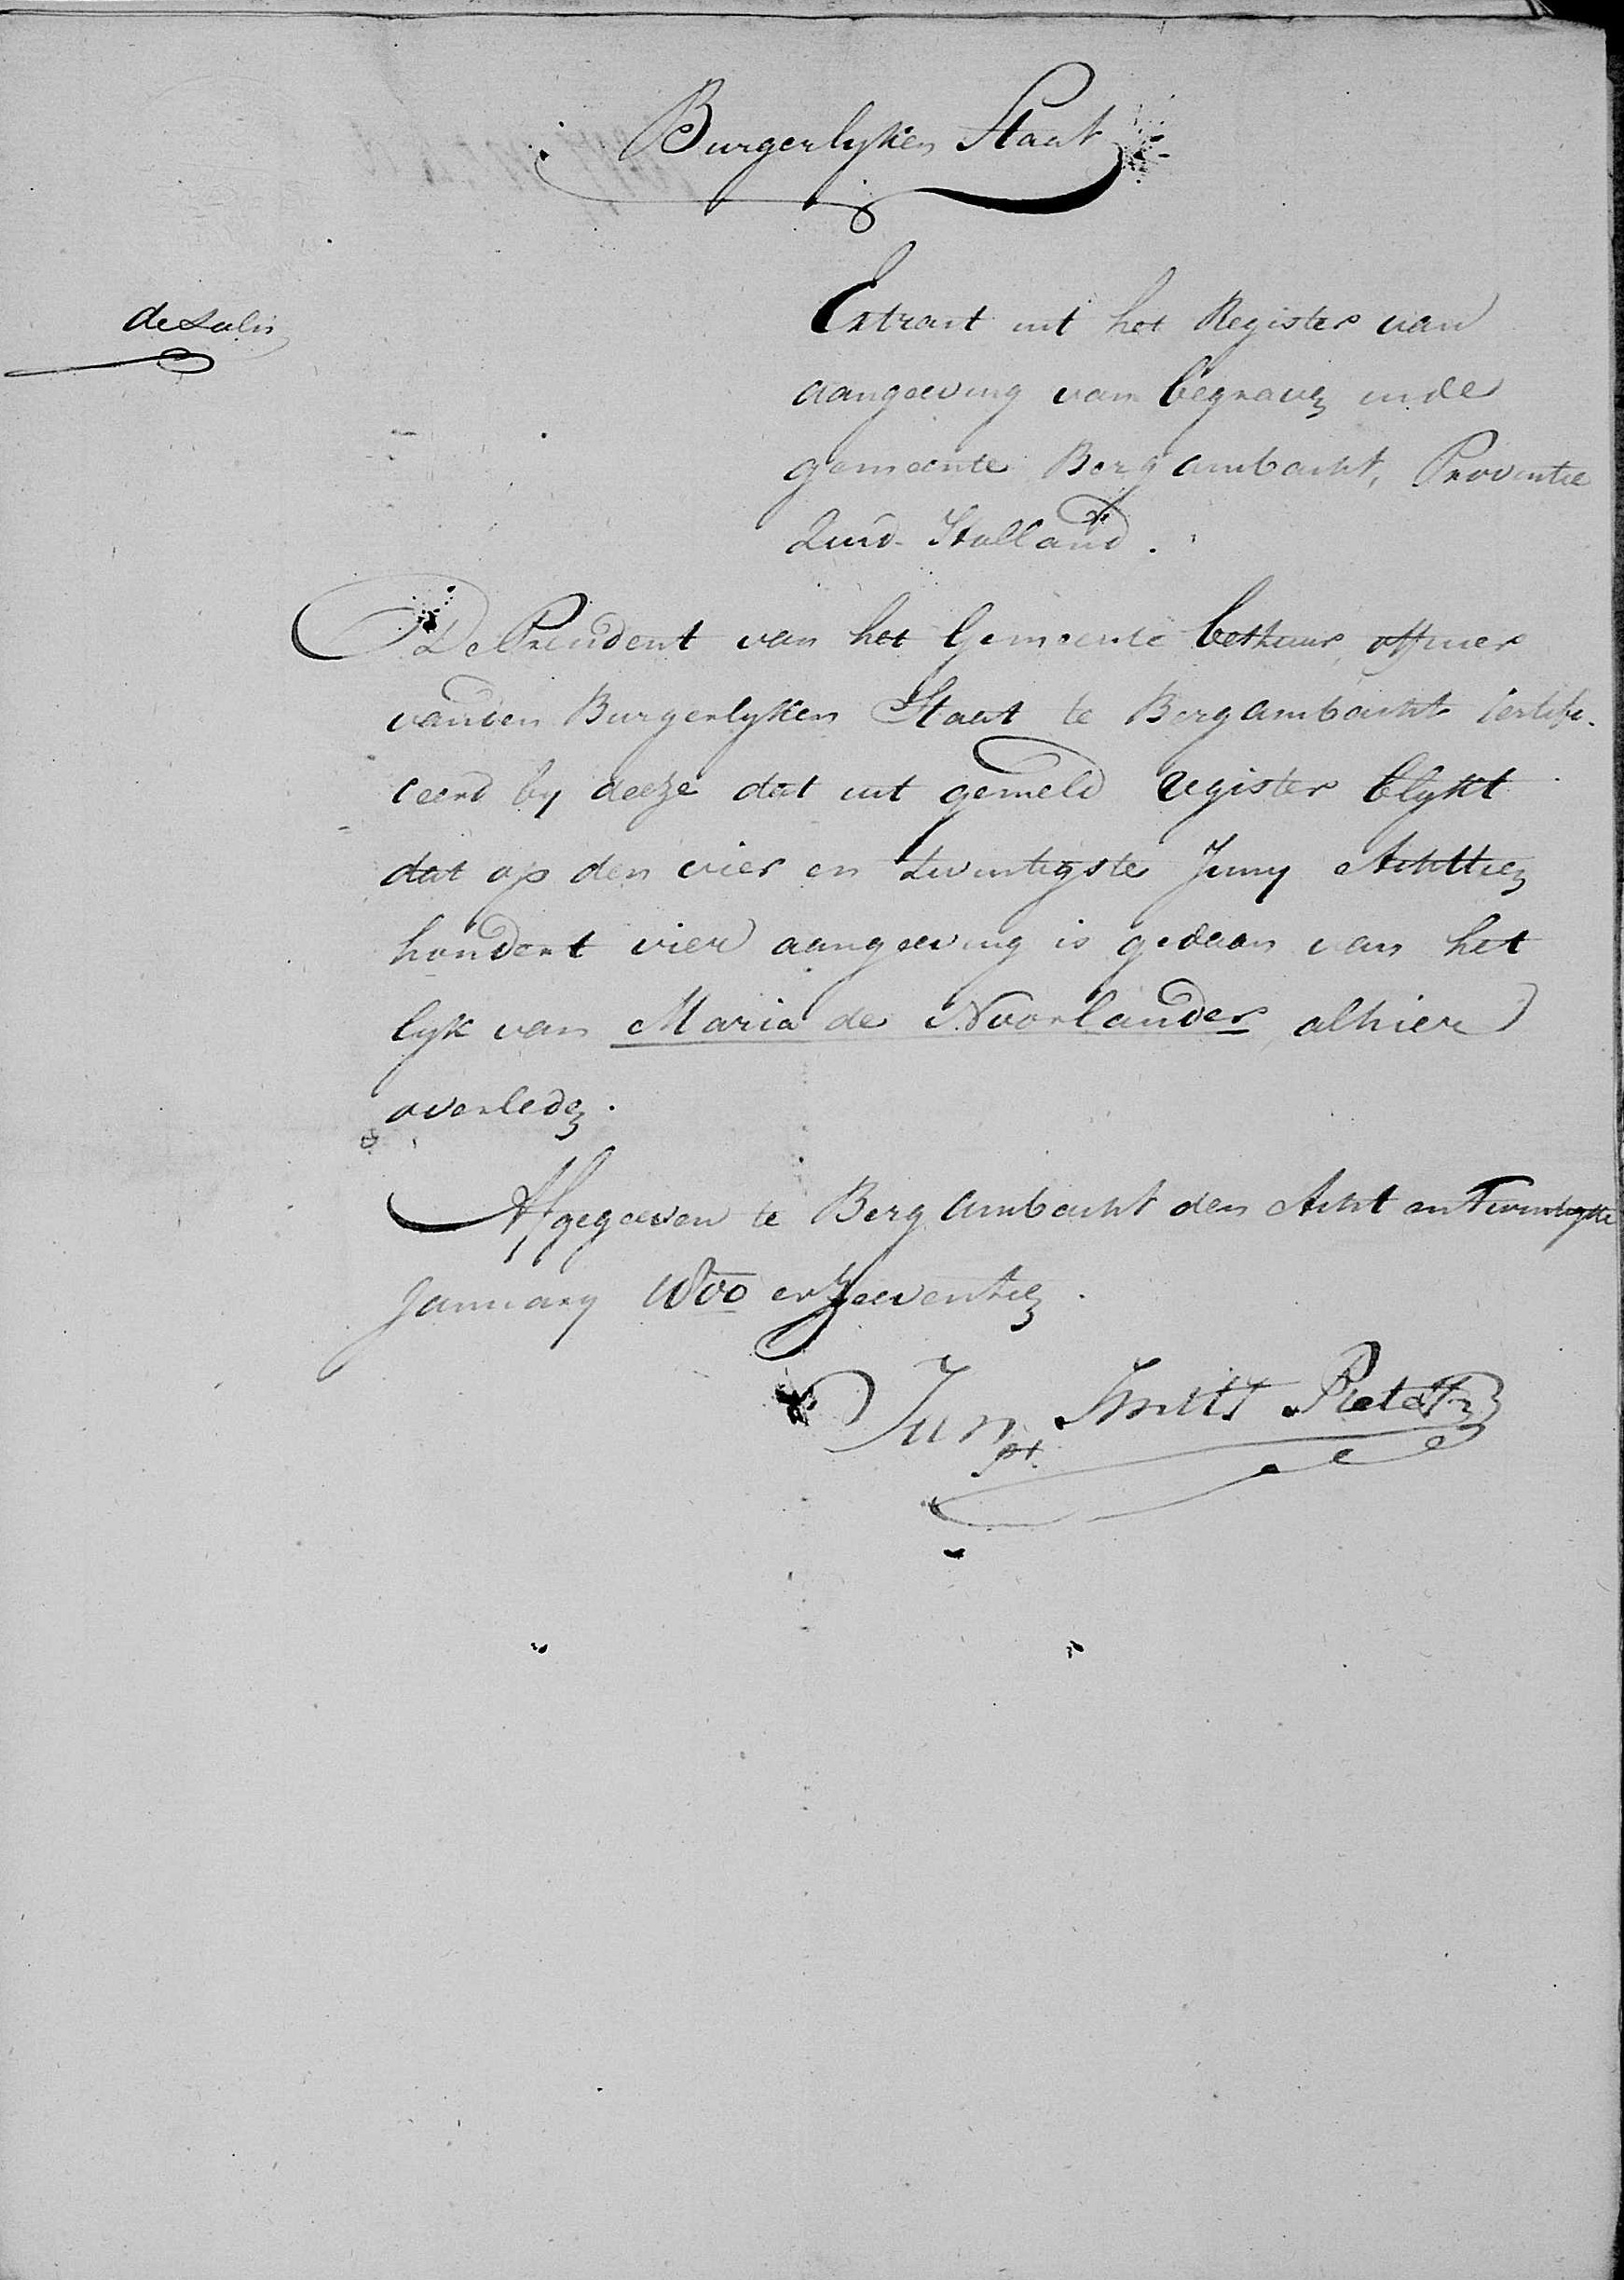 Burgerlyken Staat
de Salis
Extract uit het Register van
aangeeving van begraven in de
gemeente Bergambacht, Provintie
Zuid-Holland.
De President van het Gemeente bestuur, officier
van den Burgerlyken Staat te Bergambacht certifi-
ceerd by deeze dat uit gemeld register blykt
dat op den vier en twintigste Juny Achttien
hondert vier aangeeving is gedaan van het
lyk van Maria de Noorlander, alhier
overleden.
Afgegeeven te Bergambacht den Acht en Twintigste
January 1800 en Zeeventien.
Jan Smits Pietersz